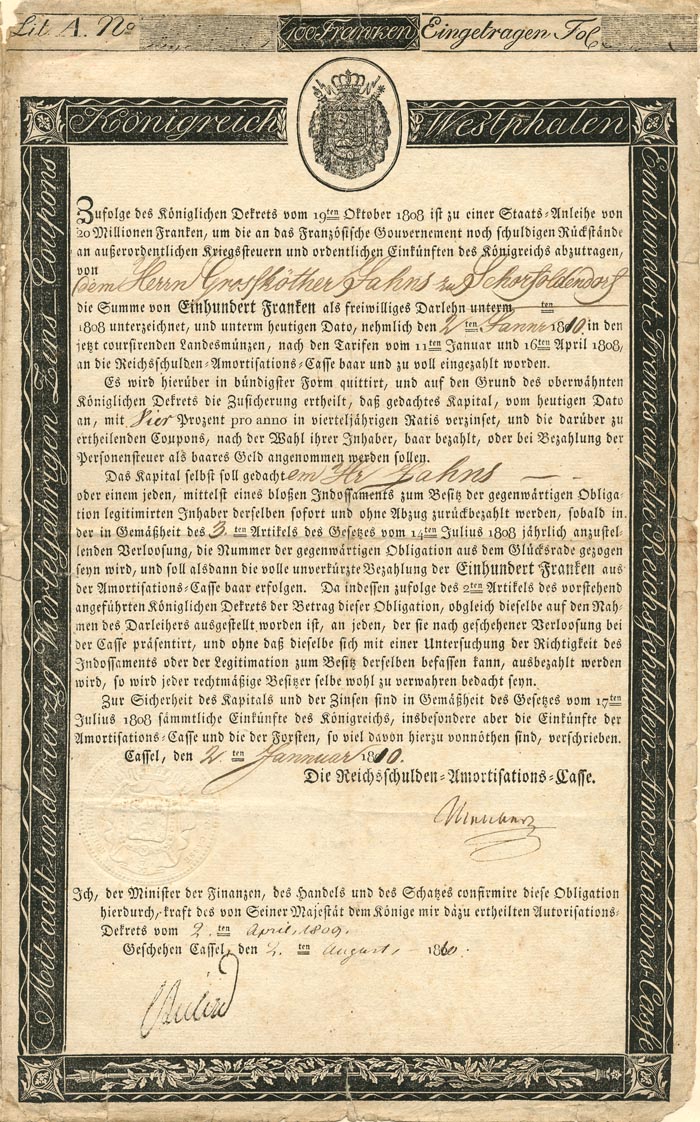 Lit. A. No
100 Franken
Eingetragen Fol.
Königreich Westphalen
Mit acht und vierzig Vierteljährigen Zins Coupons
Einhundert Francs auf die Reichsschulden-Amortisations-Casse
Zufolge des Königlichen Dekrets vom 19ten Oktober 1808 ist zu einer Staats-Anleihe von
20 Millionen Franken, um die an das Französische Gouvernement noch schuldigen Rückstände
an außerordentlichen Kriegssteuern und ordentlichen Einkünften des Königreichs abzutragen,
von
dem Herrn Grosköther Jahns zu Schorfoldendorf
die Summe von Einhundert Franken als freiwilliges Darlehn unterm ten
1808 unterzeichnet, und unterm heutigen Dato, nehmlich den 2 ten Januar 1810. in den
jetzt coursirenden Landesmünzen, nach den Tarifen vom 11ten Januar und 16ten April 1808,
an die Reichsschulden-Amortisations-Casse baar und zu voll eingezahlt worden.
Es wird hierüber in bündigster Form quittirt, und auf den Grund des oberwähnten
Königlichen Dekrets die Zusicherung ertheilt, daß gedachtes Kapital, vom heutigen Dato
an, mit Vier Prozent pro anno in vierteljährigen Ratis verzinset, und die darüber zu
ertheilenden Coupons, nach der Wahl ihrer Inhaber, baar bezahlt, oder bei Bezahlung der
Personensteuer als baares Geld angenommen werden sollen.
Das Kapital selbst soll gedachtem Hr Jahns
oder einem jeden, mittelst eines bloßen Indossaments zum Besitz der gegenwärtigen Obliga-
tion legitimirten Inhaber derselben sofort und ohne Abzug zurückbezahlt werden, sobald in
der in Gemäßheit des 3. ten Artikels des Gesetzes vom 14ten Julius 1808 jährlich anzustel-
lenden Verloosung, die Nummer der gegenwärtigen Obligation aus dem Glücksrade gezogen
seyn wird, und soll alsdann die volle unverkürzte Bezahlung der Einhundert Franken aus
der Amortisations-Casse baar erfolgen. Da indessen zufolge des 2ten Artikels des vorstehend
angeführten Königlichen Dekrets der Betrag dieser Obligation, obgleich dieselbe auf den Nah-
men des Darleihers ausgestellt worden ist, an jeden, der sie nach geschehener Verloosung bei
der Casse präsentirt, und ohne daß dieselbe sich mit einer Untersuchung der Richtigkeit des
Indossaments oder der Legitimation zum Besitz derselben befassen kann, ausbezahlt werden
wird, so wird jeder rechtmäßige Besitzer selbe wohl zu verwahren bedacht seyn.
Zur Sicherheit des Kapitals und der Zinsen sind in Gemäßheit des Gesetzes vom 17ten
Julius 1808 sämmtliche Einkünfte des Königreichs, insbesondere aber die Einkünfte der
Amortisations-Casse und die der Forsten, so viel davon hierzu vonnöthen sind, verschrieben.
Cassel, den 2 ten Jannuar 1810.
Die Reichsschulden-Amortisations-Casse.
Ich, der Minister der Finanzen, des Handels und des Schatzes confirmire diese Obligation
hierdurch, kraft des von Seiner Majestät dem Könige mir dazu ertheilten Autorisations-
Dekrets vom 2. ten April 1809.
Geschehen Cassel, den 2. ten August 1810.